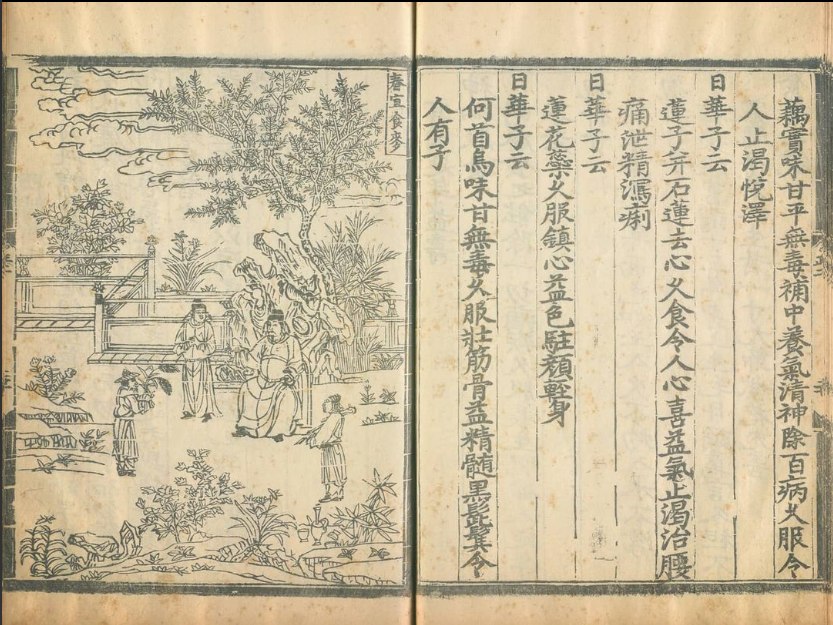 藕實味甘平無毒補中養氣清神除百病久服令
人止渴悅澤
日華子云
蓮子并石蓮去心久食令人心喜益氣止渴治腰
痛泄精瀉痢
日華子云
蓮花蘂久服鎮心益色駐顏輕身
日華子云
何首烏味甘無毒久服壯筋骨益精髓黑髭鬢令
人有子
春宜食麥